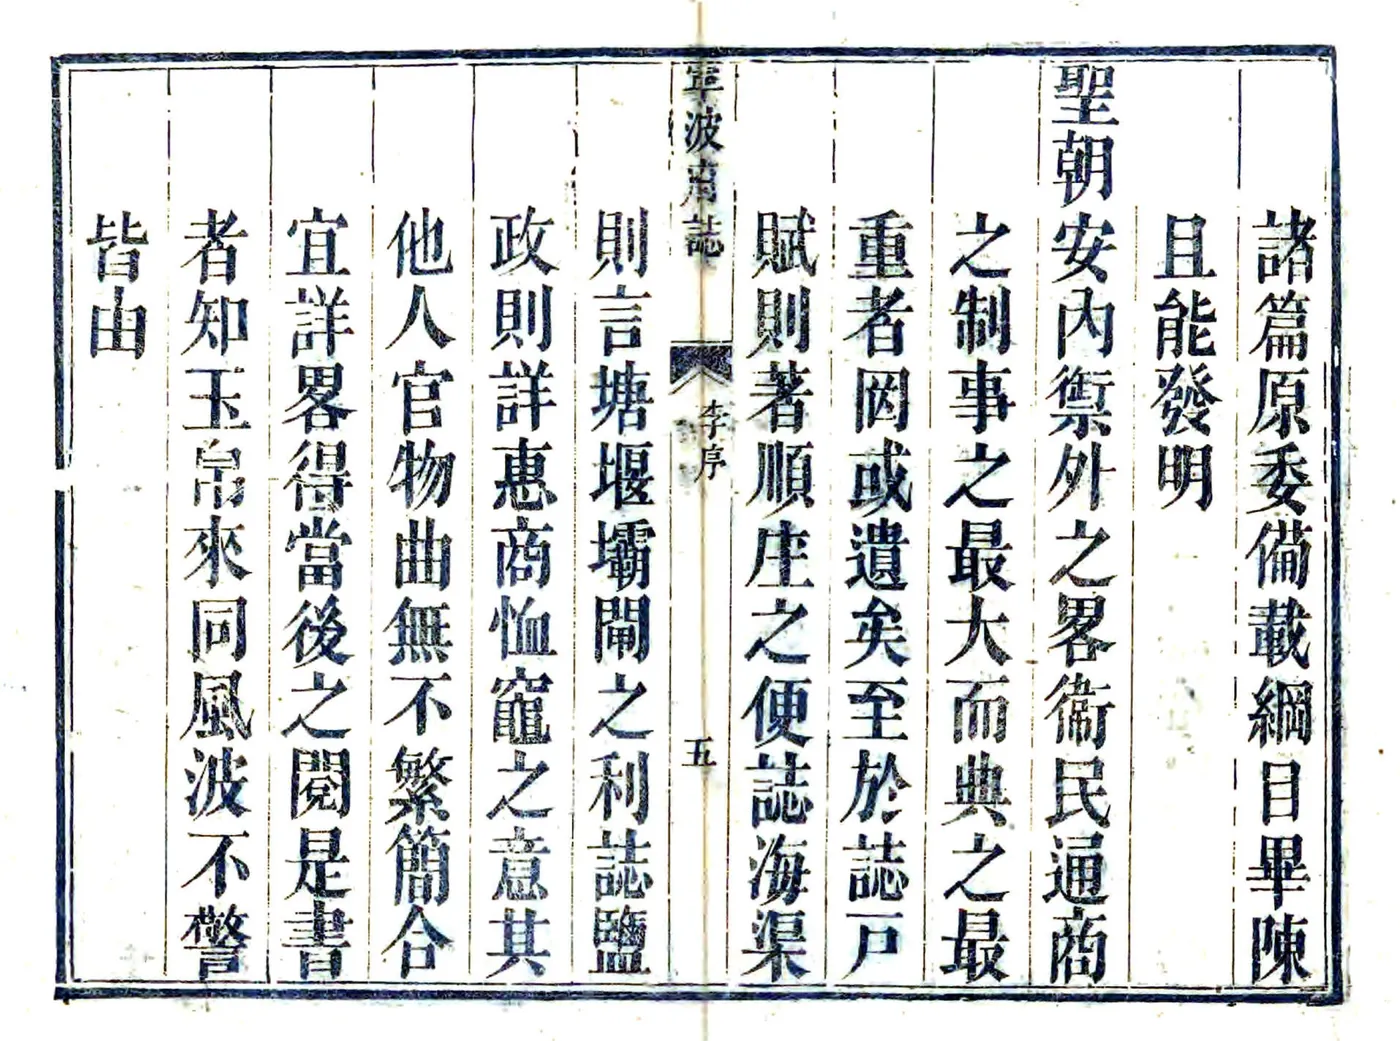 諸篇原委備載綱目畢陳
且能發明
聖朝安內禦外之畧衞民通商
之制事之最大而典之最
重者罔或遺矣至於誌戶
賦則著順庄之便誌海渠
寧波府誌
李序
五
則言塘堰壩閘之利誌鹽
政則詳惠商恤竈之意其
他人官物曲無不繁簡合
宜詳畧得當後之閱是書
者知玉帛來同風波不警
皆由